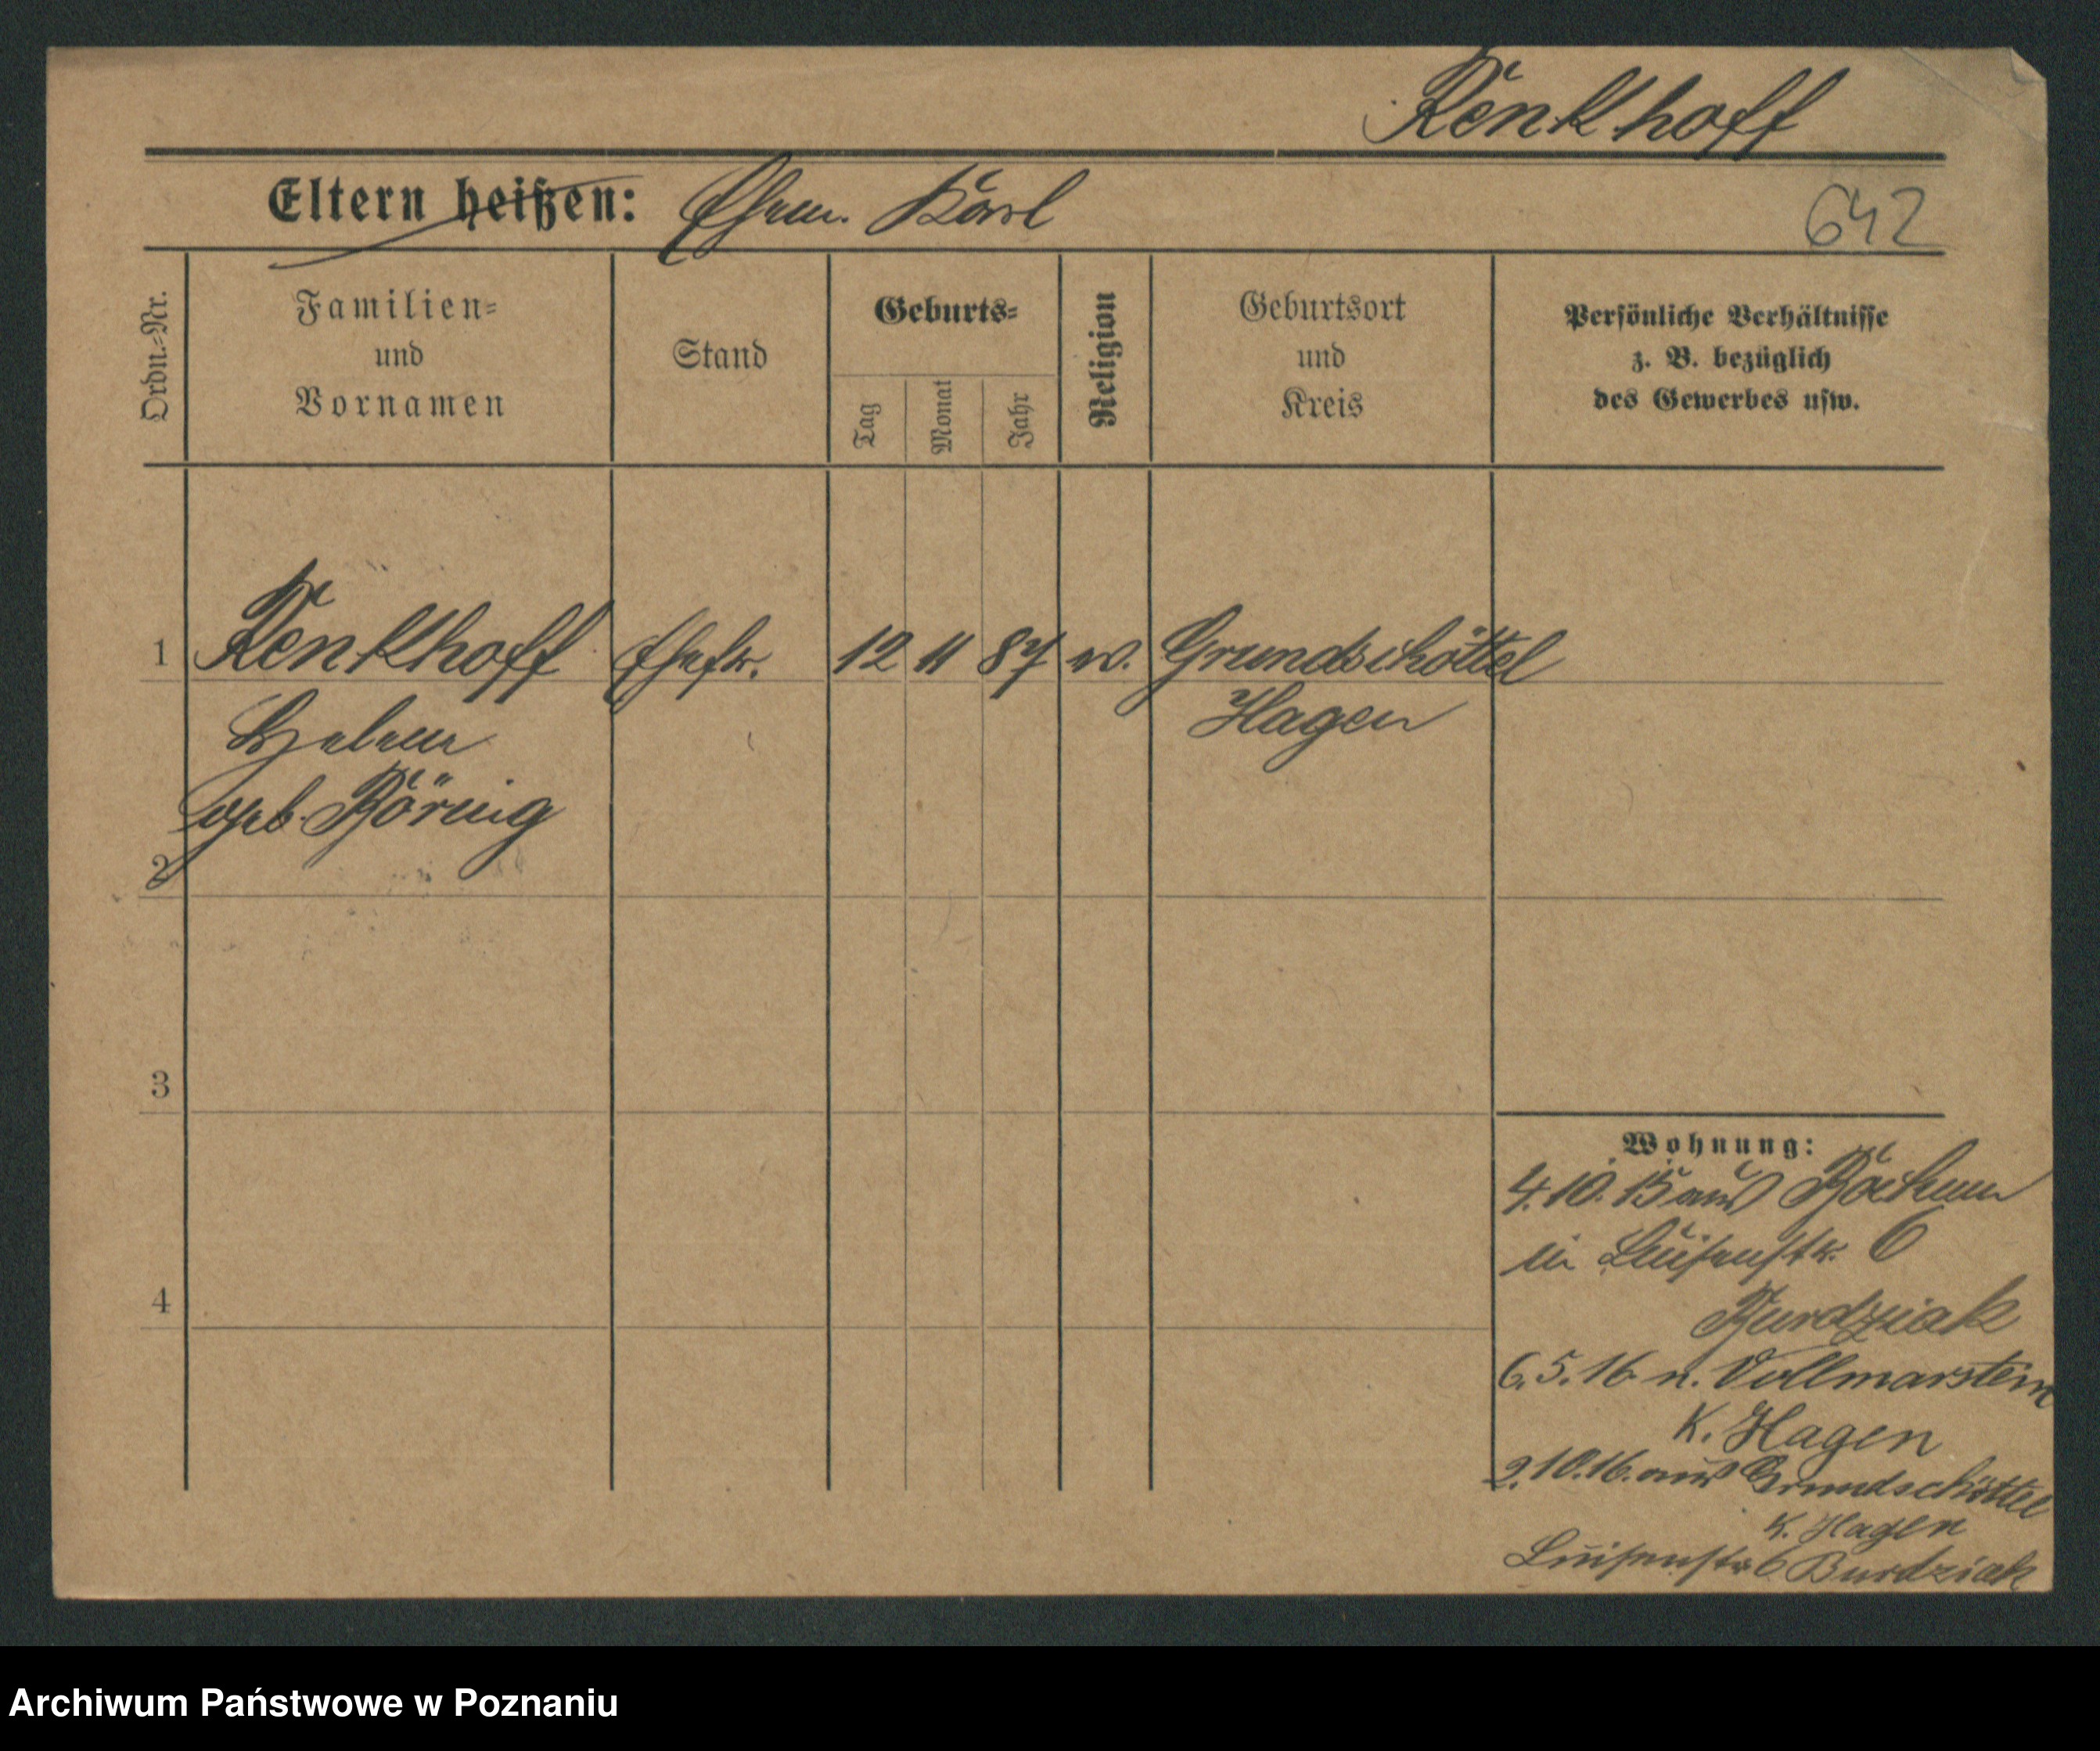 Renkhoff
Eltern heißen: Ehem. Karl
642
Ordn.-Nr.
Familien-
und
Vornamen
Stand
Geburts-
Tag
Monat
Jahr
Religion
Geburtsort
und
Kreis
Persönliche Verhältnisse
z. B. bezüglich
des Gewerbes usw.
1 Renkhoff Ehefr. 12 11 87 ev. Grundschöttel
Hagen
Helene
geb. Börnig
2
3
4
Wohnung:
4.10.15 aus Bochum
in Luisenstr. 6
Burdziak
6.5.16 n. Vollmarstein
K. Hagen
2.10.16. aus Grundschöttel
K. Hagen
Luisenstr 6 Burdziak
Archiwum Państwowe w Poznaniu